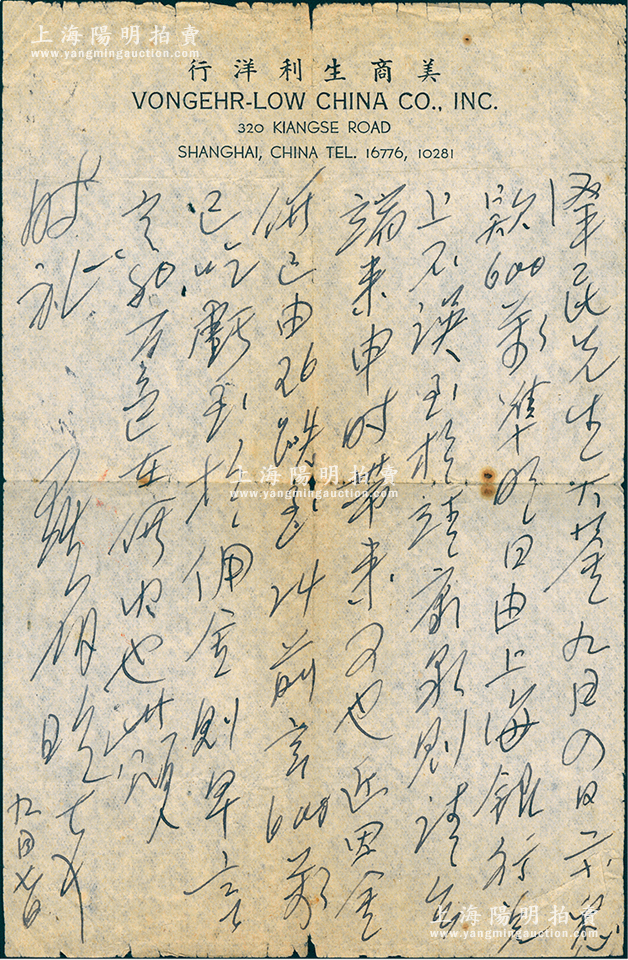 上海陽明拍賣
www.yangmingauction.com
行洋利生商美
VONGEHR-LOW CHINA CO., INC.
320 KIANGSE ROAD
SHANGHAI, CHINA TEL. 16776, 10281
民先生大鑒九月四日示悉
款600萬準明日由上海銀行
上不誤至於請康泉則請
端來申時帶來可也近因金
價已由26跌至24前言600萬
已吃虧至於佣金則早言
定一切在價內也此頌
時祉
弟 日晚七時
九月七日
上海陽明拍賣
www.yangmingauction.com
上海陽明拍賣
www.yangmingauction.com